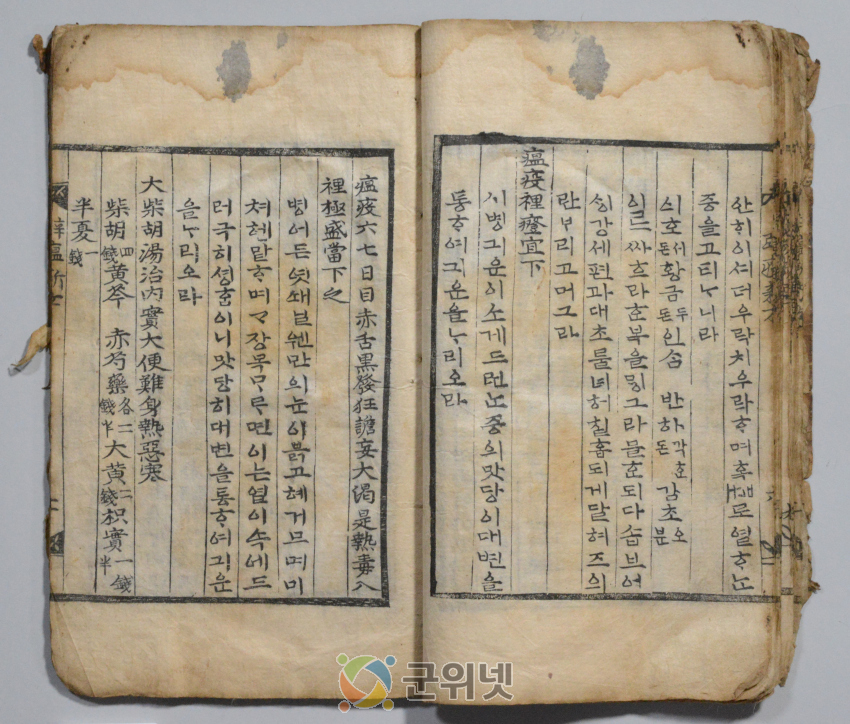 산히이셔더우락치우락ᄒᆞ며혹ᄣᅢ로열ᄒᆞᄂᆞᆫ
즁을고티ᄂᆞ니라
싀호서돈황금두돈인ᄉᆞᆷ 반하각ᄒᆞᆫ돈 감초오분
이ᄅᆞᆯ싸ᄒᆞ라ᄒᆞᆫ복을ᄆᆡᆼ그라믈ᄒᆞᆫ되다ᄉᆞᆸ브어
ᄉᆡᆼ강세편과대초둘녀허칠홉되게달혀즈의
란ᄇᆞ리고머그라
瘟疫裡證宜下
시병긔운이소게드런ᄂᆞᆫ즁의맛당이대변을
통ᄒᆞ여긔운을ᄂᆞ리오라
瘟疫六七日目赤舌黑發狂譫妄大渴是熱毒入
裡極盛當下之
병어든엿쇄닐웬만의눈이븕고혜거므며미
쳐헷말ᄒᆞ며ᄀᆞ장목ᄆᆞᄅᆞ면이ᄂᆞᆫ열이속에드
러극히셩ᄒᆞᆷ이니맛당히대변을통ᄒᆞ여긔운
을ᄂᆞ리오라
大柴胡湯治內實大便難身熱惡寒
柴胡四錢黃芩 赤芍藥各二錢半大黃二錢枳實一錢半
半夏一錢
군위넷